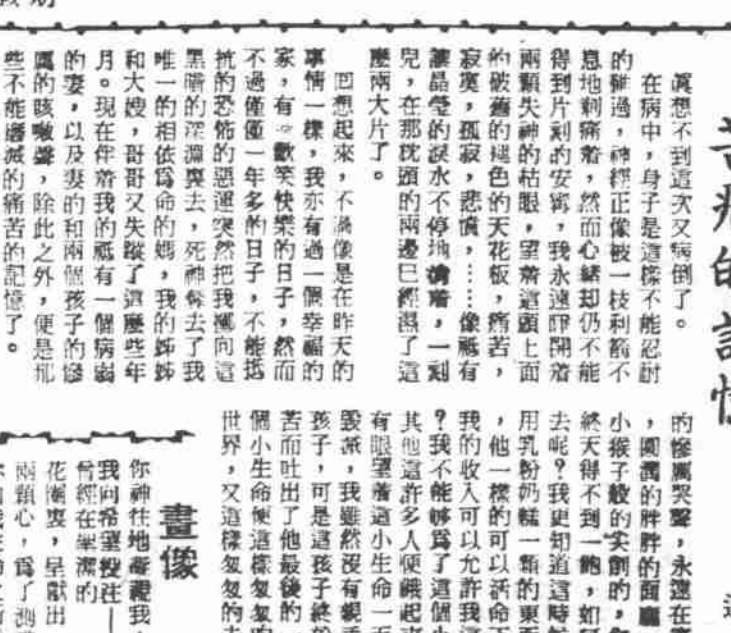 苦痛的記憶
真想不到這次又病倒了。
在病中，身子是這樣不能忍耐
的難過，神經正像被一枝利箭不
息地刺痛着，然而心緒却仍不能
得到片刻的安甯，我永遠睜開着
兩顆失神的枯眼，望着這頭上面
的破舊的褪色的天花板，痛苦，
寂寞，孤寂，悲憤，……像祗有
讓晶瑩的淚水不停地淌着，一刻
兒，在那枕頭的兩邊已經濕了這
麼兩大片了。
回想起來，不過像是在昨天的
事情一樣，我亦有過一個幸福的
家，有歡笑快樂的日子，然而
不過僅僅一年多的日子，不能抵
抗的恐怖的惡運突然把我擲向這
黑暗的深淵裏去，死神奪去了我
唯一的相依爲命的媽，我的姊姊
和大嫂，哥哥又失蹤了這麼些年
月。現在伴着我的祗有一個病弱
的妻，以及妻的和兩個孩子的慘
厲的咳嗽聲，除此之外，便是那
些不能磨滅的痛苦的記憶了。
的慘厲哭聲，永遠在
，圓潤的胖胖的面龐
小猴子般的尖削的，
終天得不到一飽，如
去呢？我更知道這時
用乳粉奶糕一類的東
，他一樣的可以活命
我的收入可以允許我
？我不能够爲了這個小
其他這許多人便餓起
有眼望着這小生命一天
毀滅，我雖然沒有親手
孩子，可是這孩子終於
苦而吐出了他最後的一
個小生命便這樣匆匆的
世界，又這樣匆匆的去
畫像
你神往地凝視我
我向希望投注—
曾經在聖潔的
花園裏，呈獻出
兩顆心，爲了